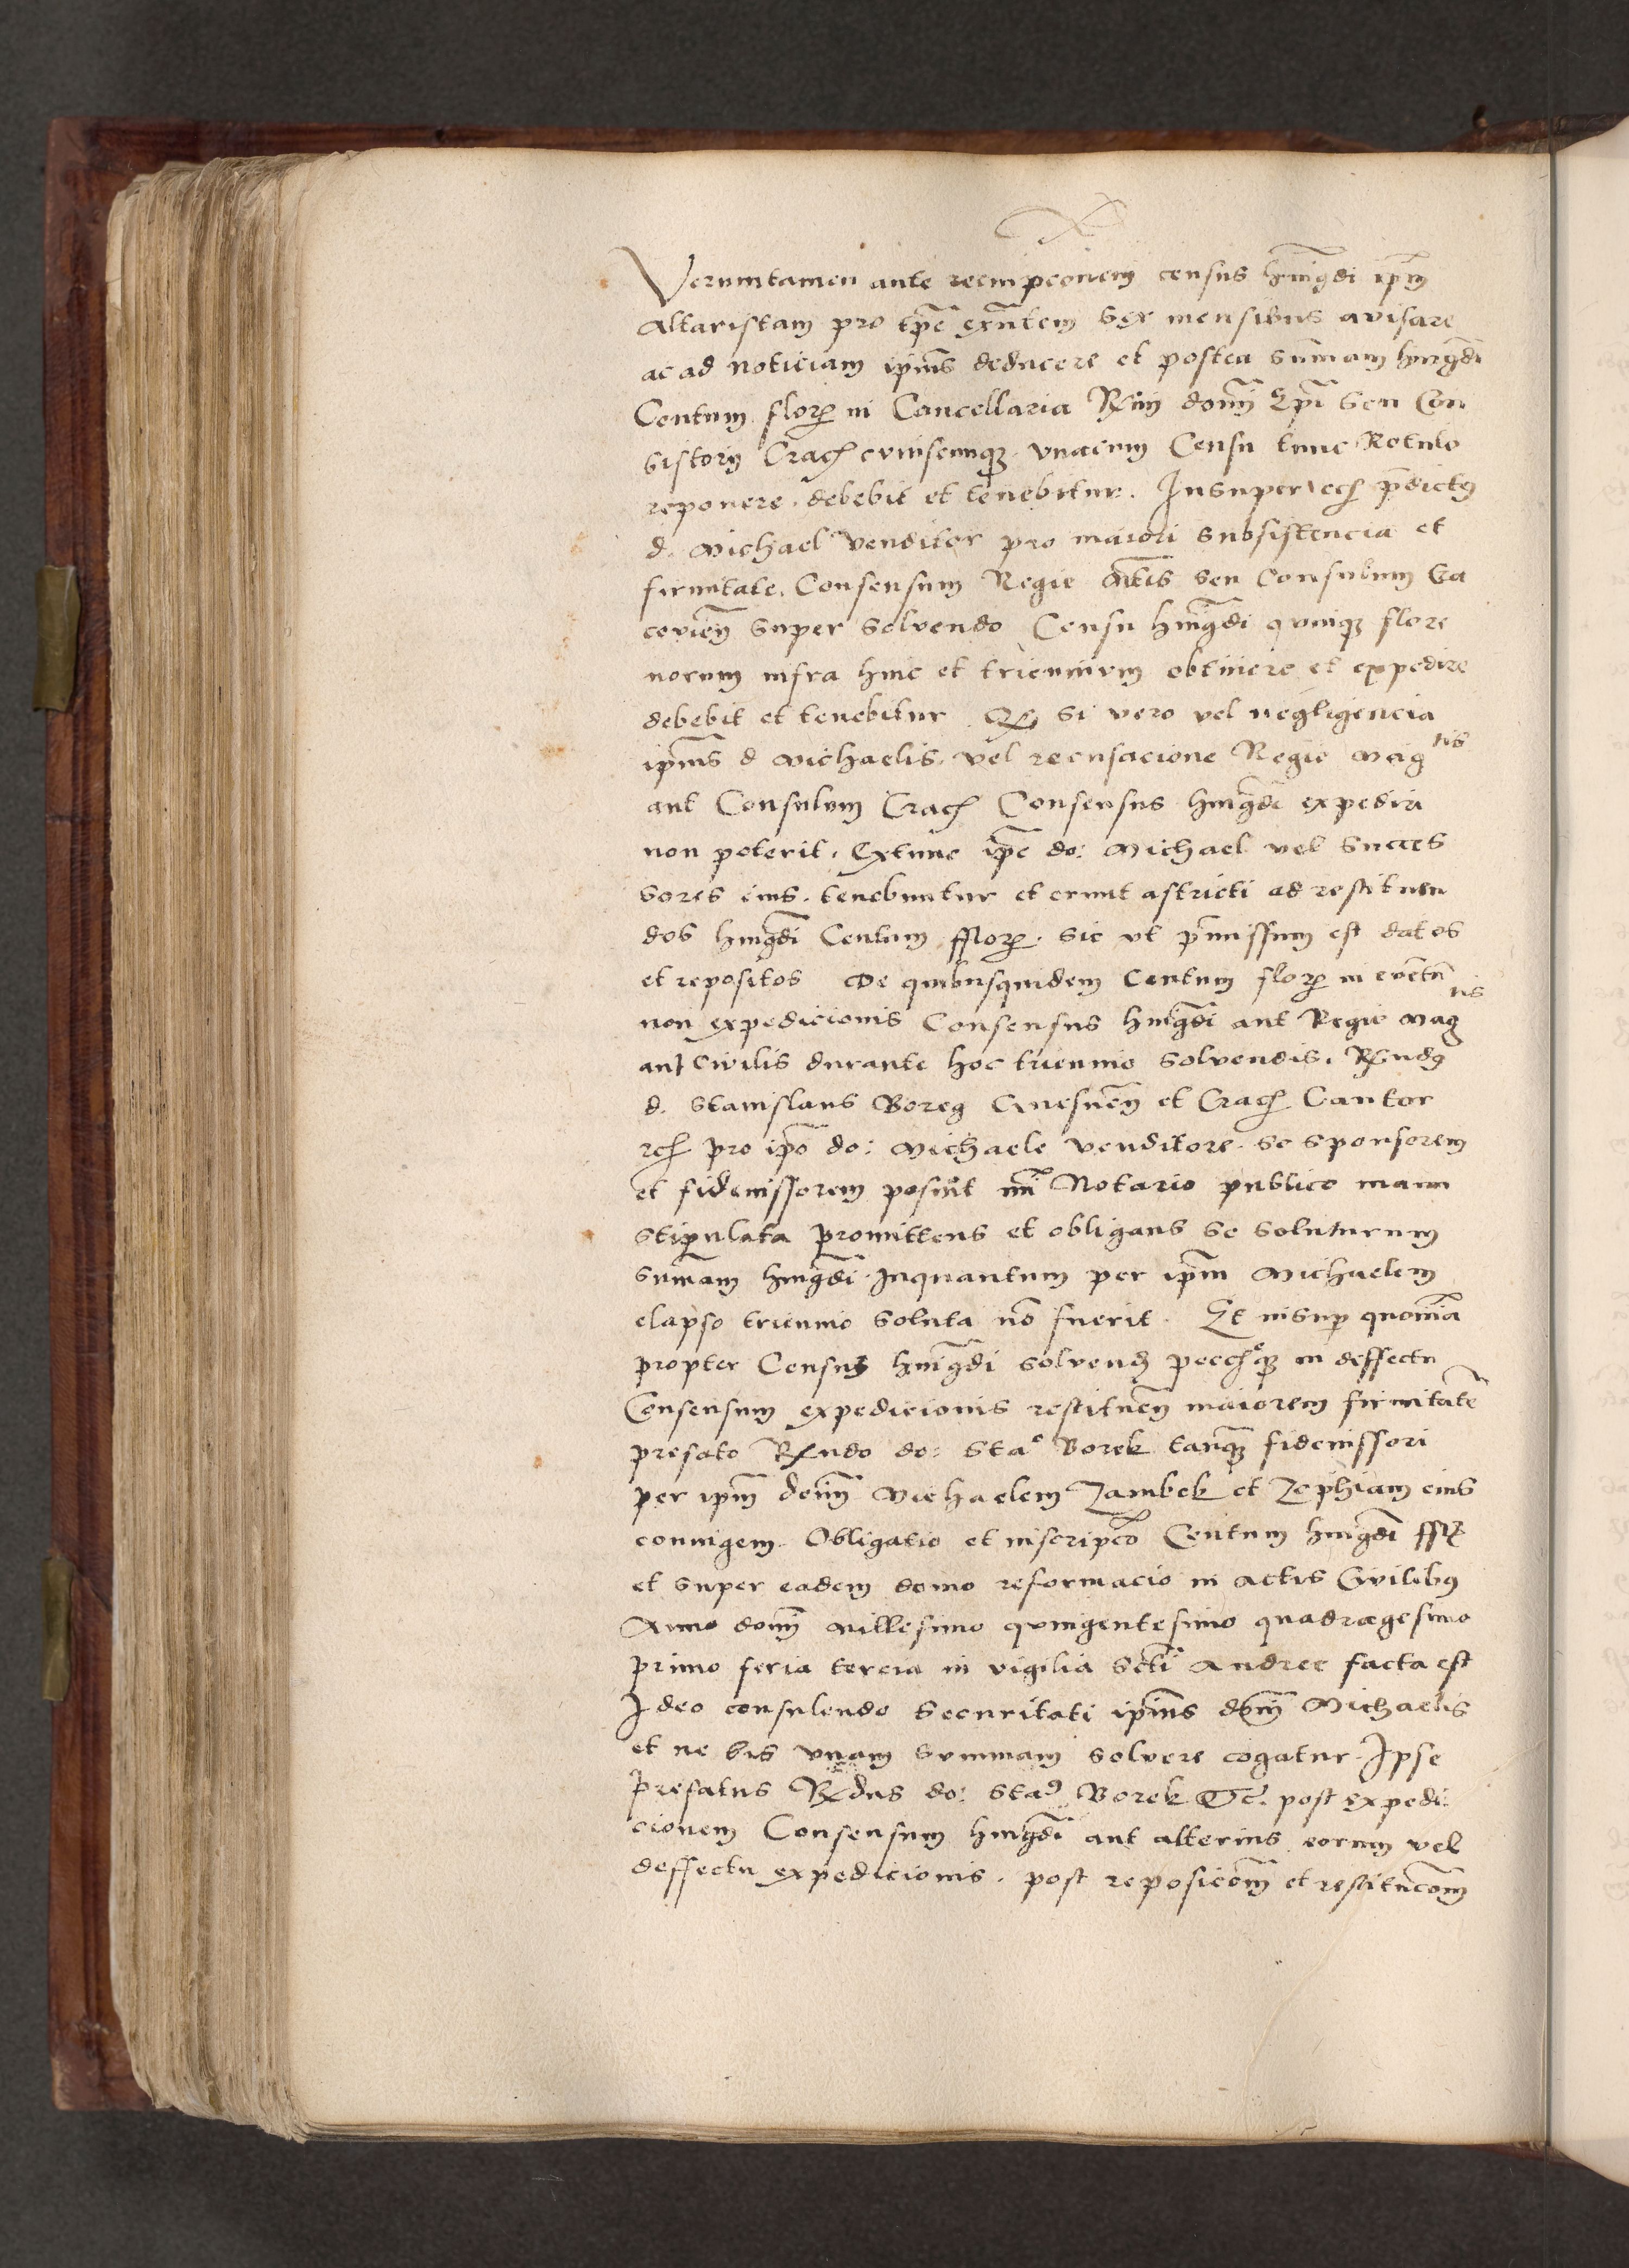 Verumtamen ante reempcionem census hmgdi ipm
Altaristam pro tpe exntem sex mensibus avisare
ac ad noticiam ipius deducere et postea summam hmgdi
Centum flor in Cancellaria Rmi domi Epi seu Con
sistorij Crac cuiuscumqz vnacum Censu tunc Rotulo
reponere debebit et tenebitur. Insuper predictus
d. Michael venditor pro maiori subsistencia et
firmitate, Consensum Regie Mtis seu Consulum Cra
covien super solvendo Censu hmgdi quinqz flore
norum infra hinc et triennium obtinere et expedire
debebit et tenebitur Q si vero vel negligencia
ipius d Michaelis, vel recusacione Regie Mag tis
aut Consulum Crac Consensus hmgdi expediri
non poterit, Extunc ipe do: Michael vel succes
sores eius, tenebuntur et erunt astricti ad restituen
dos hmgdi Centum fflor. sic vt pmissum est datos
et repositos De quibusquidem Centum flor in eventu
non expedicionis Consensus hmgdi aut Regie Mag tis
aut Civilis durante hoc triennio solvendis. Rndus
d. Stanislaus Boreg Gnesnen et Crac Cantor
pro ipo do: Michaele venditore. se sponsorem
et fideiussorem posuit mi Notario publico manu
stipulata promittens et obligans se soluturum
sumam hmgdi Inquantum per ipm Michaelem
elapso triennio soluta no fuerit. Et insup quoniam
propter Census hmgdi solvend in deffectu
Consensum expedicionis restituen maiorem firmitate
prefato Rndo do: Sta° Borek tanqz fideiussori
per ipm domi Michaelem Zambek et Zophiam eius
coniugem. Obligatio et inscripcio Centum hmgdi ffl
et super eadem domo reformacio in actis Civilibus
Anno domi Millesimo quingentesimo quadragesimo
primo feria tercia in vigilia Scti Andree facta est
Ideo consulendo securitati ipius domi Michaelis
et ne bis vnam summam solvere cogatur. Ipse
prefatus Rndus do: Sta Borek Etc. post expedi
cionem Consensum hmgdi aut alterius eorum vel
deffectu expedicionis. post reposicom et restitucom